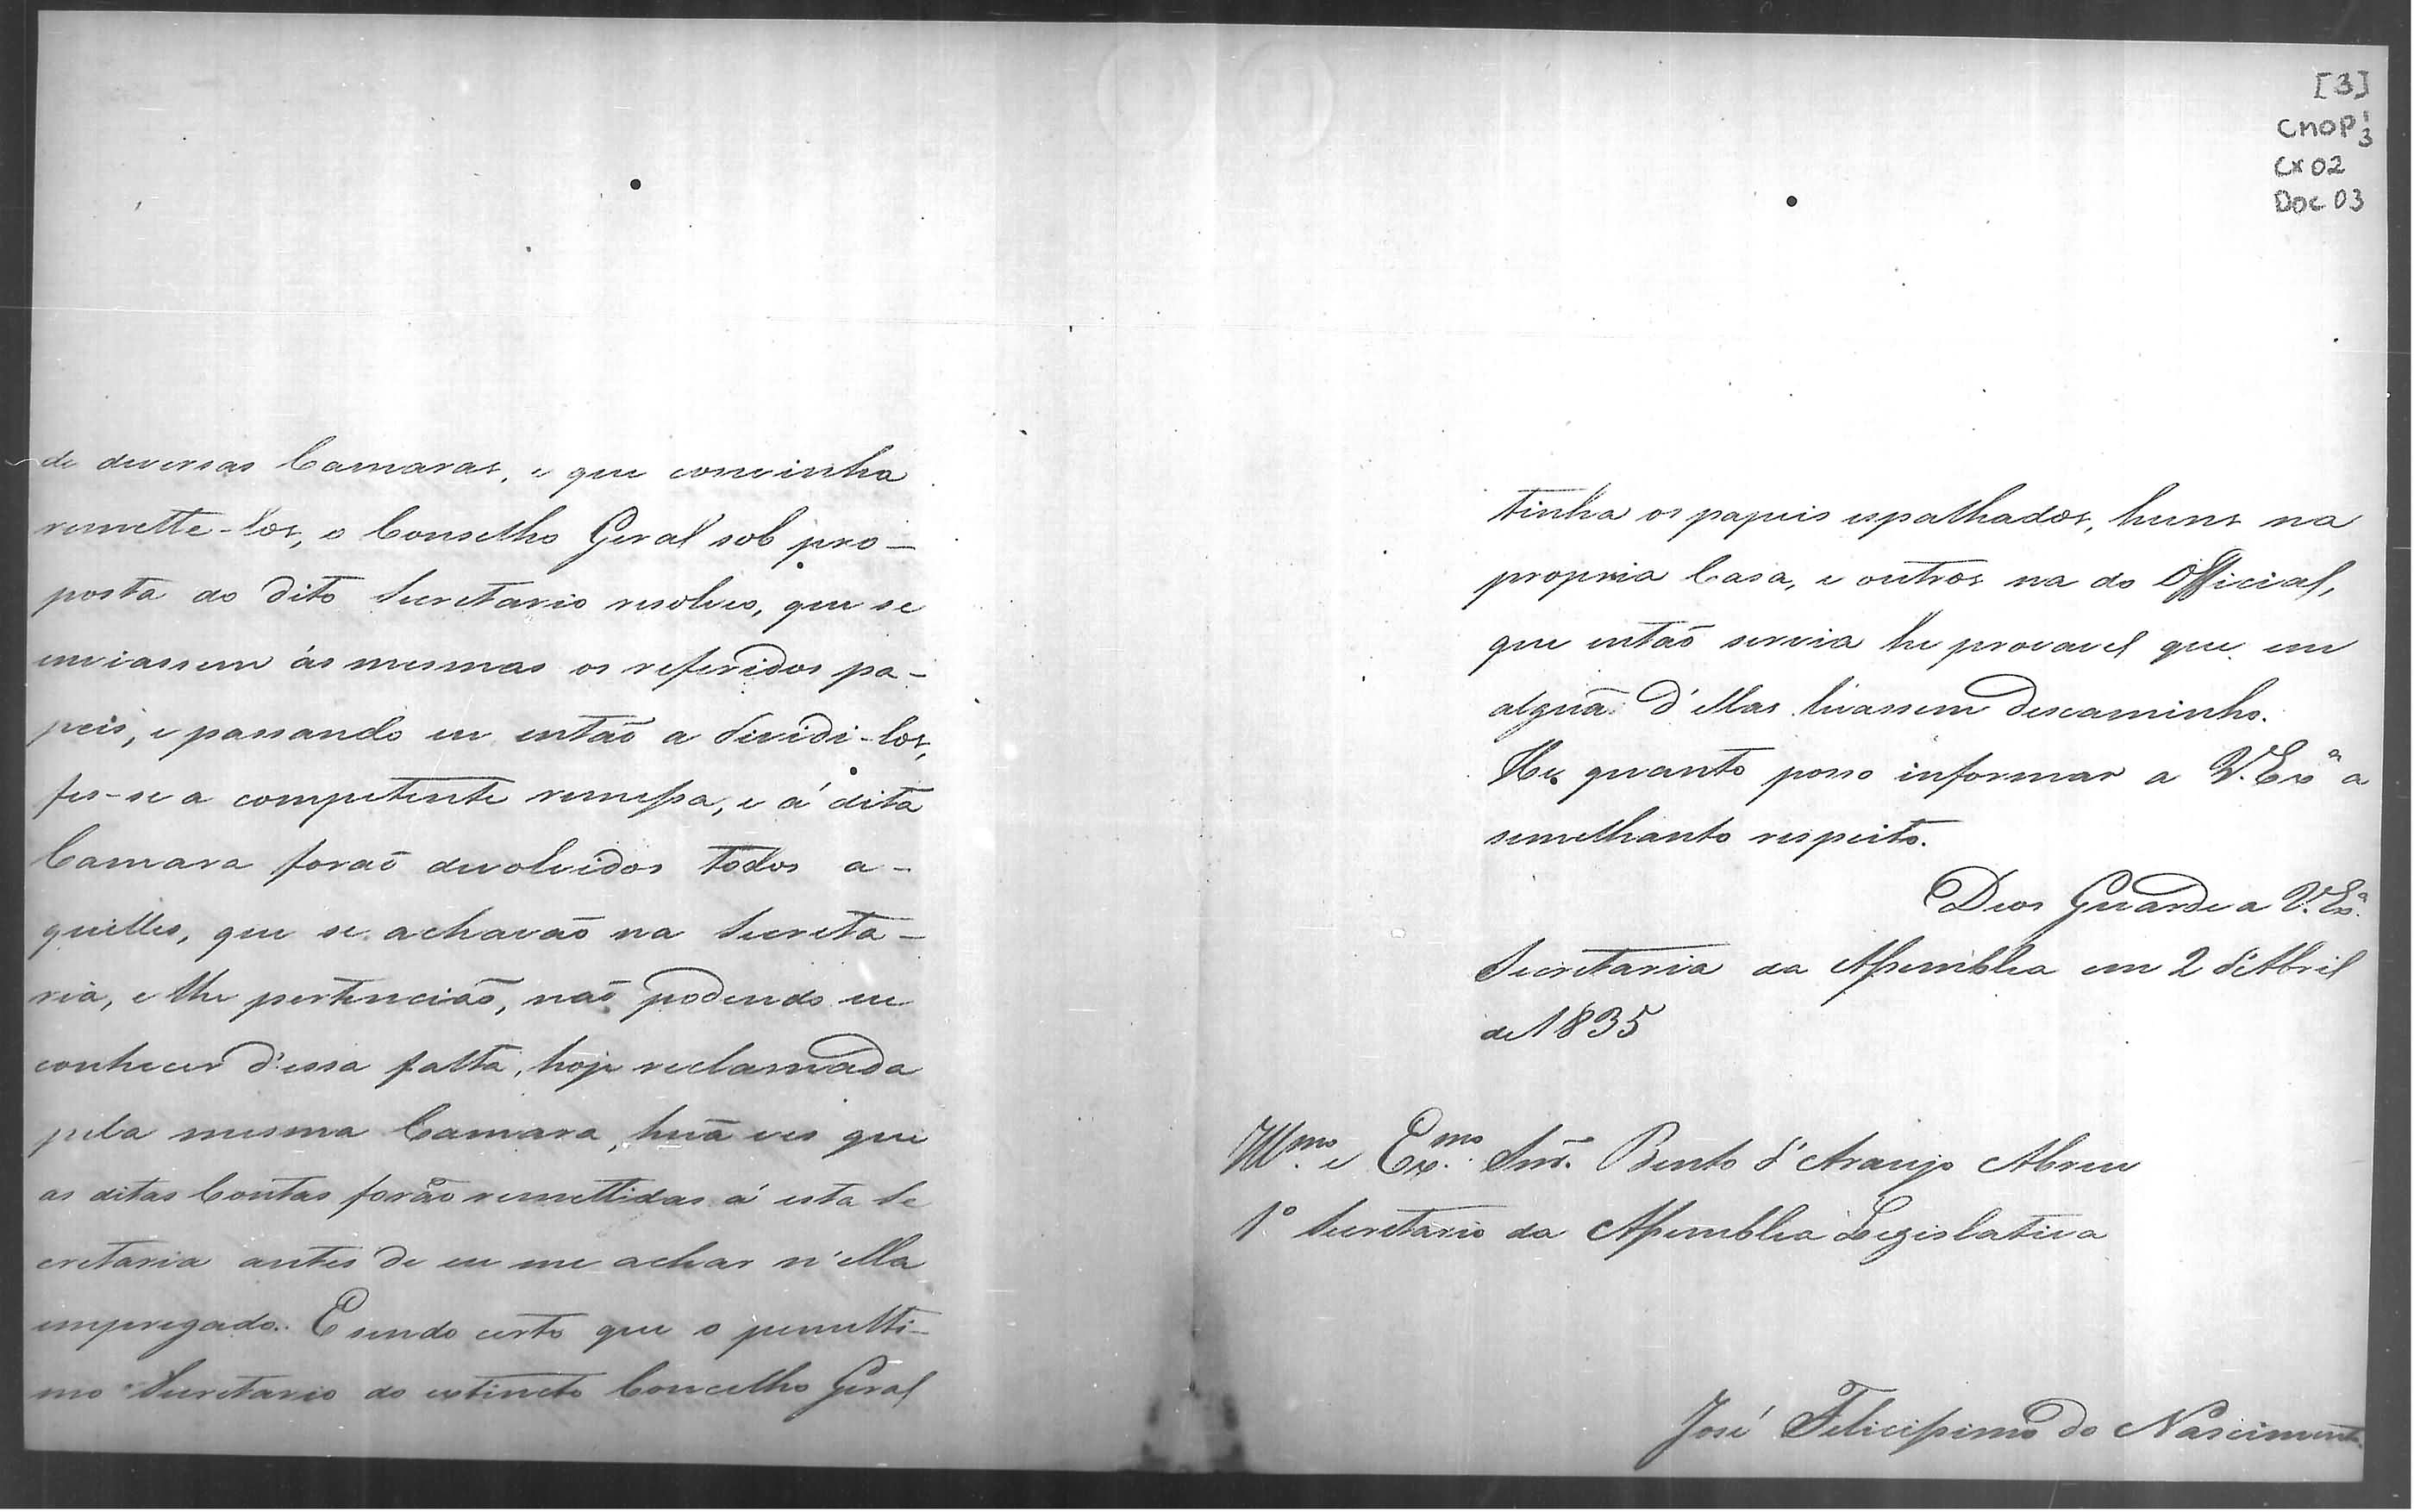 de diversas Camaras, e que convinha
remette-los, o Conselho Geral sob pro-
posta do dito Secretario resolveo, que se
enviassem ás mesmas os referidos pa-
peis, e passando eu entaõ a dividi-los,
fes-se a competente remessa, e á dita
Camara foraõ devolvidos todos a-
quelles, que se achavaõ na Secreta-
ria, e lhe pertenciaõ, naõ podendo eu
conhecer d'essa falta, hoje reclamada
pela mesma Camara, huã ves que
as ditas Contas foraõ remettidas á esta Se
cretaria antes de eu me achar n'ella
empregado. E sendo certo que o penulti-
mo Secretario do extincto Concelho Geral
[3]
CMOP 1/3
Cx 02
Doc 03
tinha os papeis espalhados, huns na
propria Casa, e outros na do Official,
que entaõ servia he provavel que em
alguã d'ellas levassem descaminho.
He quanto posso informar a V. Exª a
semelhante respeito.
Deos Guarde a V. Exª
Secretaria da Assemblea em 2 d'Abril
de 1835
Illmo. e Exmo. Snr. Bento d'Araujo Abreu
1º Secretario da Assemblea Legislativa
José Felicissimo do Nascimento